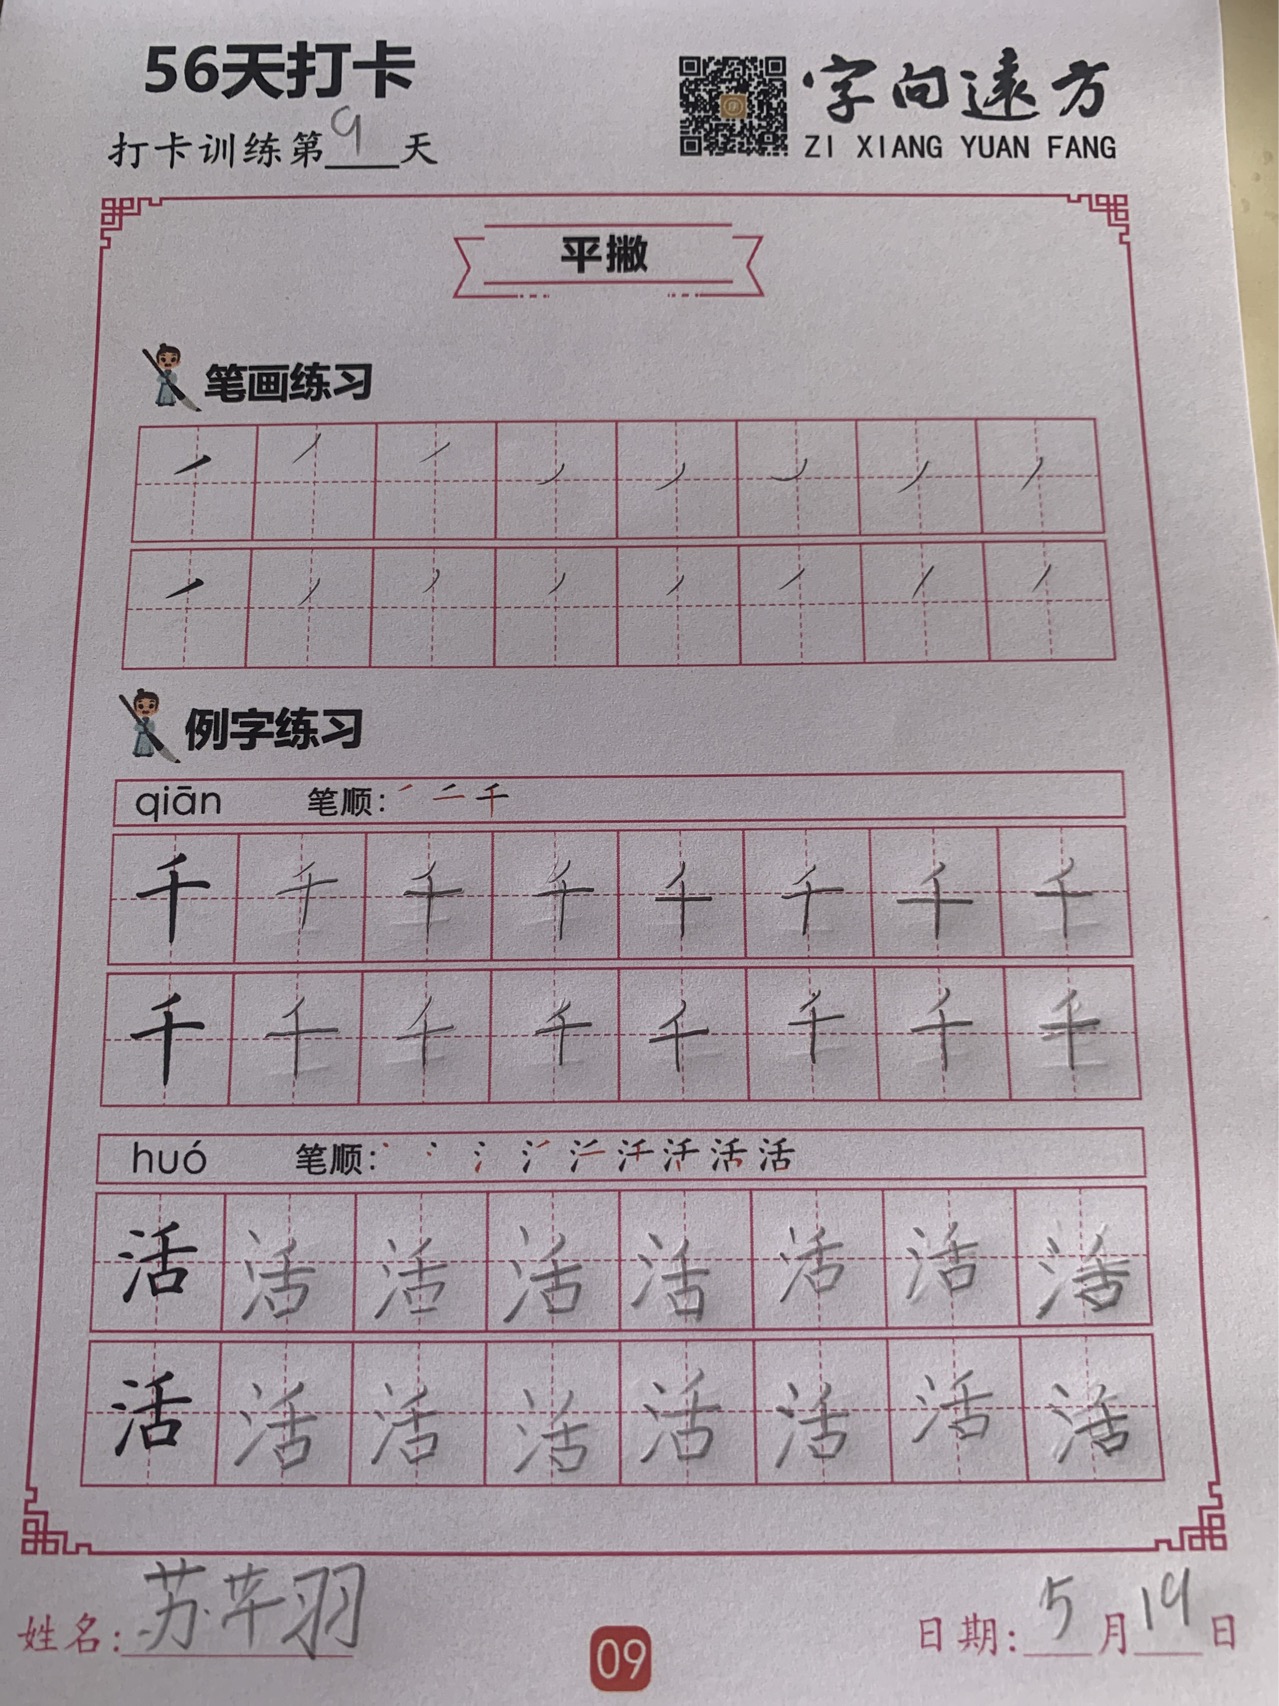 56天打卡
打卡训练第9天
字向遠方
ZI XIANG YUAN FANG
平撇
笔画练习
例字练习
qiān 笔顺: 千
千 千 千 千 千 千 千 千
千 千 千 千 千 千 千 千
huó 笔顺: 活
活 活 活 活 活 活 活 活
活 活 活 活 活 活 活 活
姓名: 苏芊羽
09
日期: 5月19日